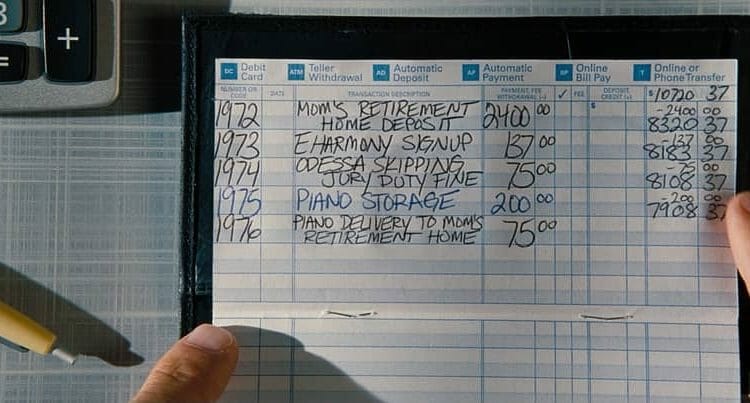 3
+
=
DC Debit Card
ATM Teller Withdrawal
AD Automatic Deposit
AP Automatic Payment
BP Online Bill Pay
T Online or Phone Transfer
NUMBER OR CODE DATE TRANSACTION DESCRIPTION PAYMENT, FEE WITHDRAWAL (-) ✓ FEE DEPOSIT CREDIT (+) $10720 37
1972 MOM'S RETIREMENT 2400 00 $ -2400 00
HOME DEPOSIT 8320 37
1973 EHARMONY SIGNUP 137 00 -137 00
8183 37
1974 ODESSA SKIPPING 75 00 -75 00
JURY DUTY FINE 8108 37
1975 PIANO STORAGE 200 00 -200 00
7908 37
1976 PIANO DELIVERY TO MOM'S 75 00
RETIREMENT HOME